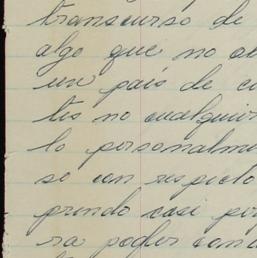 transcurso de
algo que no
un país de
tes no
lo personalme
se con respecto
prendo casi por
ra poder